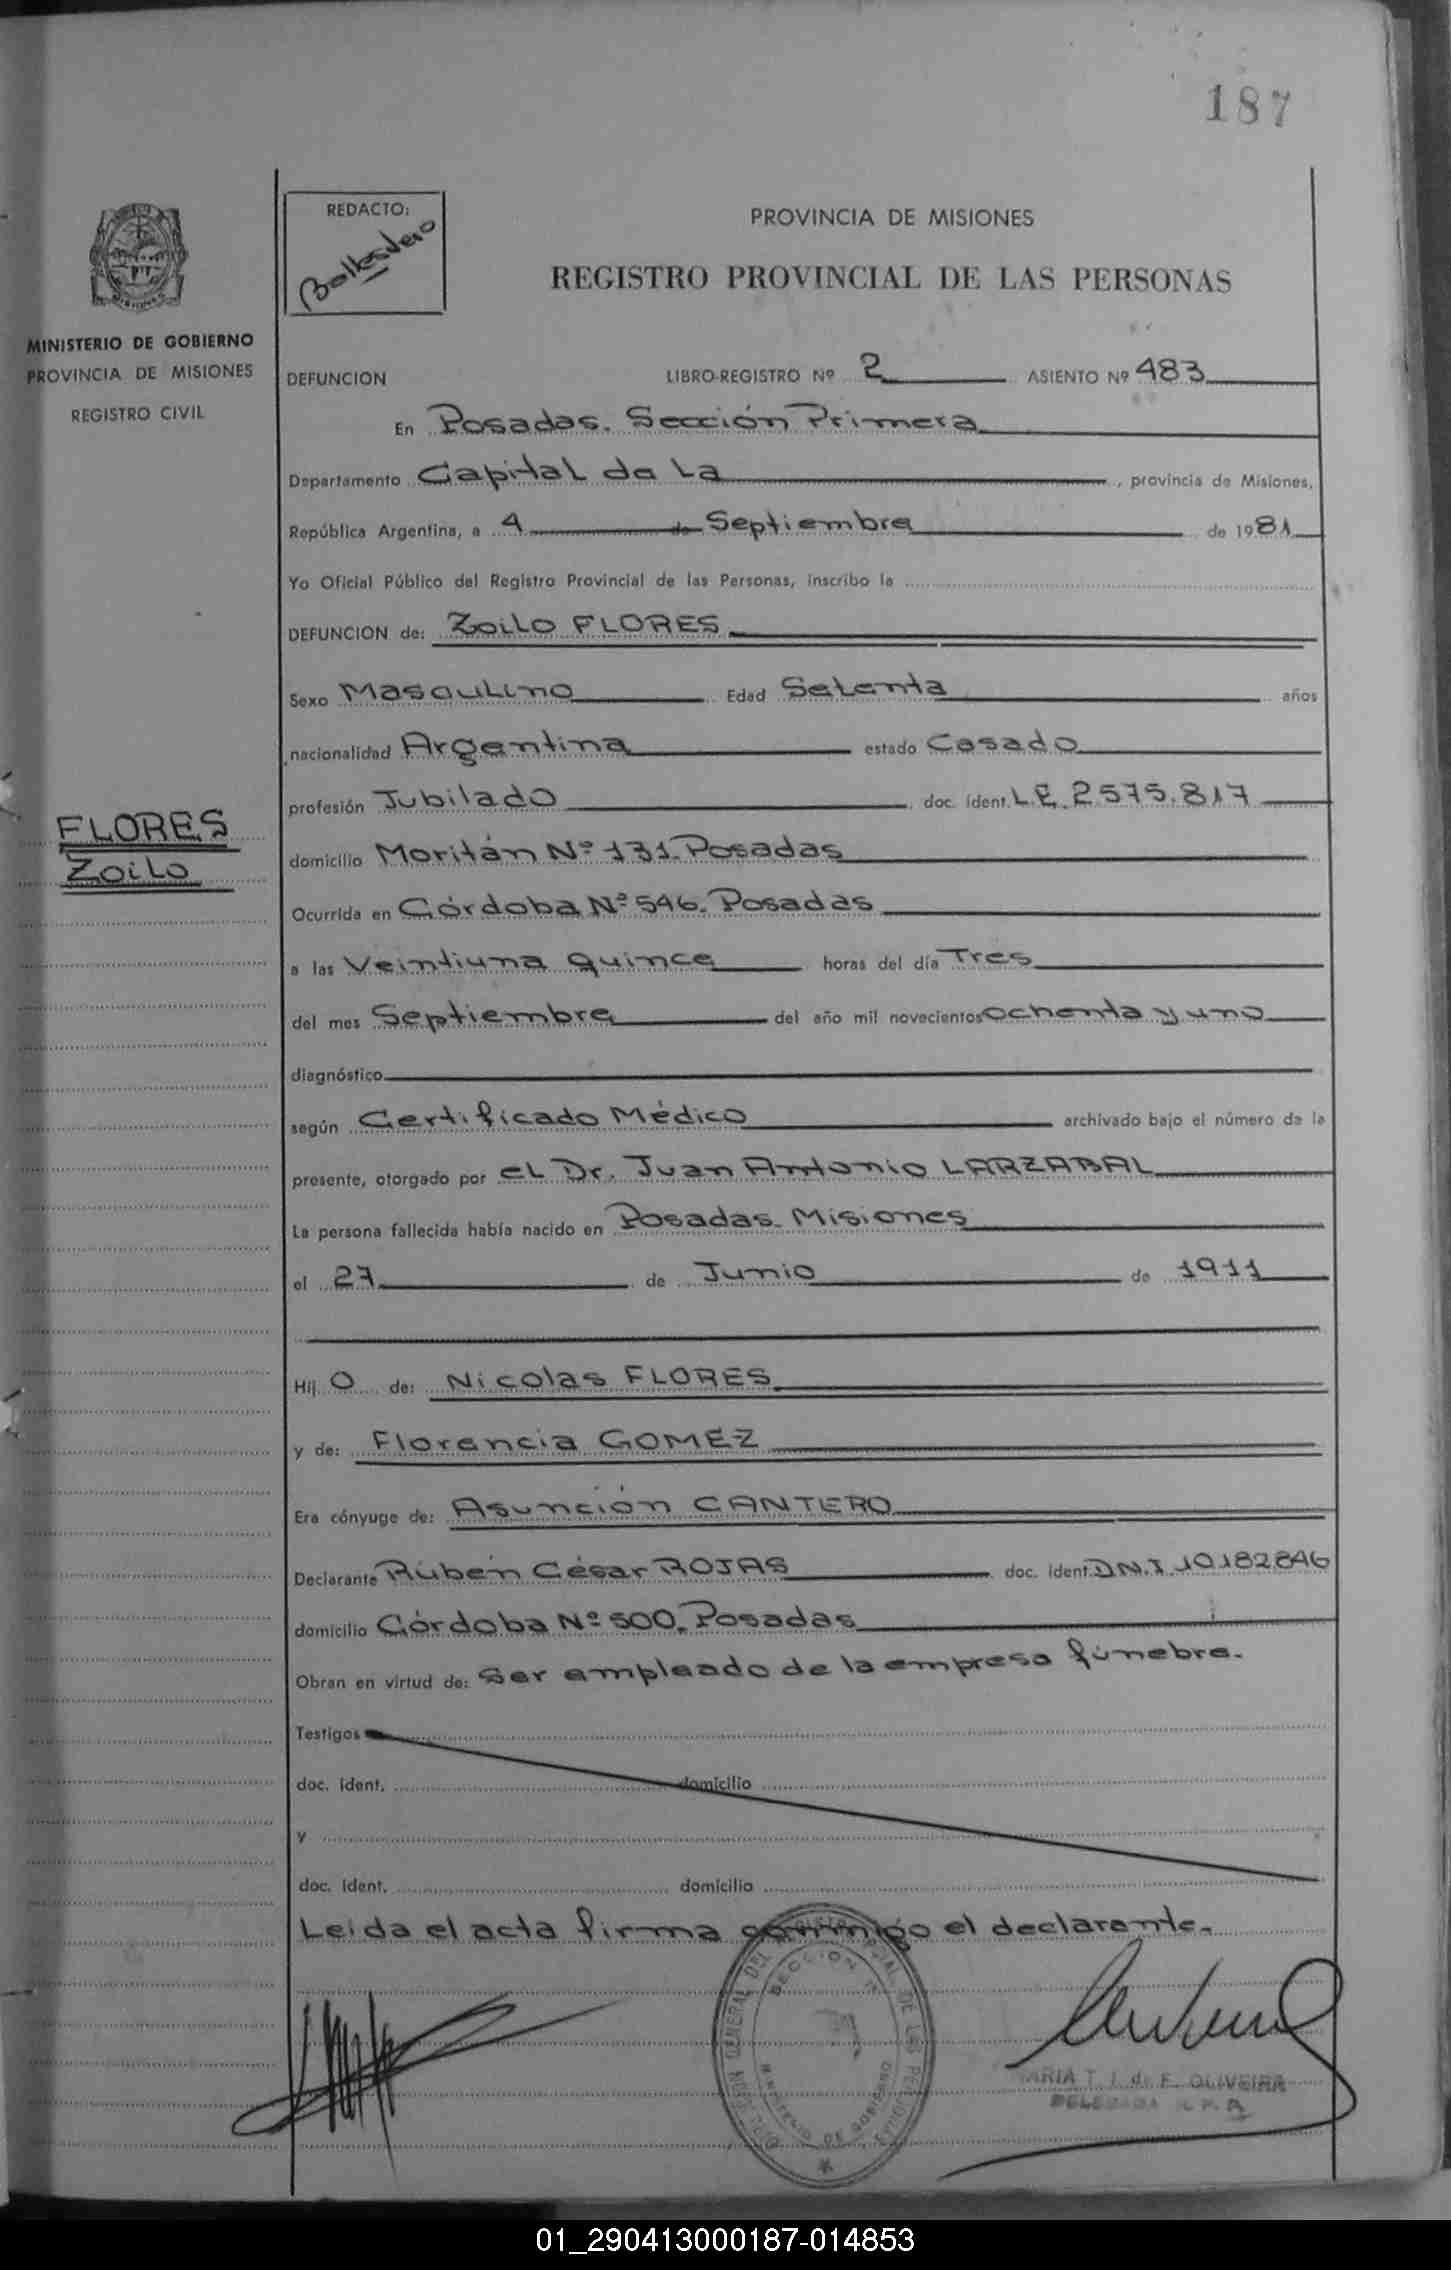 187
REDACTO:
Ballesdero
PROVINCIA DE MISIONES
REGISTRO PROVINCIAL DE LAS PERSONAS
MINISTERIO DE GOBIERNO
PROVINCIA DE MISIONES
REGISTRO CIVIL
DEFUNCION LIBRO-REGISTRO Nº 2 ASIENTO Nº 483
En Posadas. Sección Primera
Departamento Capital de La, provincia de Misiones,
República Argentina, a 4 de Septiembre de 1981
Yo Oficial Público del Registro Provincial de las Personas, inscribo la
DEFUNCION de: Zoilo FLORES
Sexo Masculino Edad Setenta años
nacionalidad Argentina estado Casado
profesión Jubilado doc. ident. L.E. 2.575.817
FLORES
Zoilo
domicilio Moritán Nº 131. Posadas
Ocurrida en Córdoba Nº 546. Posadas
a las Veintiuna quince horas del día Tres
del mes Septiembre del año mil novecientos ochenta y uno
diagnóstico
según Certificado Médico archivado bajo el número de la
presente, otorgado por el Dr. Juan Antonio LARZABAL
La persona fallecida había nacido en Posadas. Misiones
el 27 de Junio de 1911
Hij o de: Nicolas FLORES
y de: Florencia GOMEZ
Era cónyuge de: Asunción CANTERO
Declarante Rúben César ROJAS doc. ident. D.N.I. 10.182.846
domicilio Córdoba Nº 500. Posadas
Obran en virtud de: Ser empleado de la empresa fúnebre.
Testigos
doc. ident. domicilio
y
doc. ident. domicilio
Leida el acta firma conmigo el declarante.
SECCION
MINISTERIO DE GOBIERNO
MARIA T. I. de F. OLIVEIRA
DELEGADA R. P. P.
01_290413000187-014853